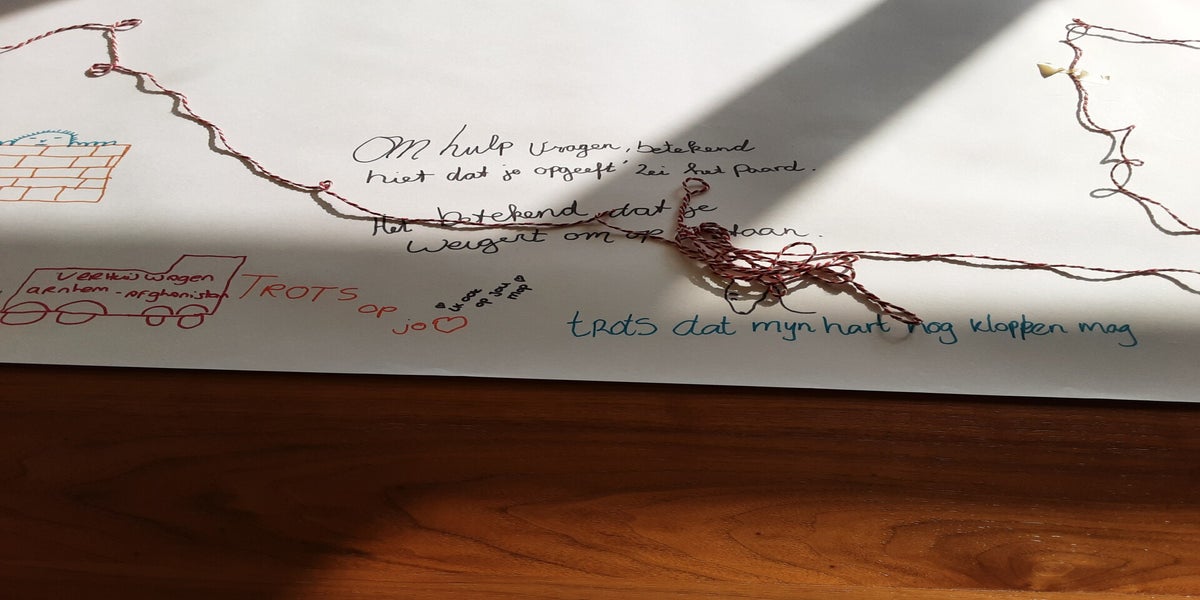 Om hulp vragen, betekend
niet dat je opgeeft' zei het paard.
Het betekend dat je
weigert om op
taan.
VERHUISWAGEN
arnhem - afghanistan
TROTS
op
jo
ik ook
op jou
mop
trots dat myn hart nog kloppen mag